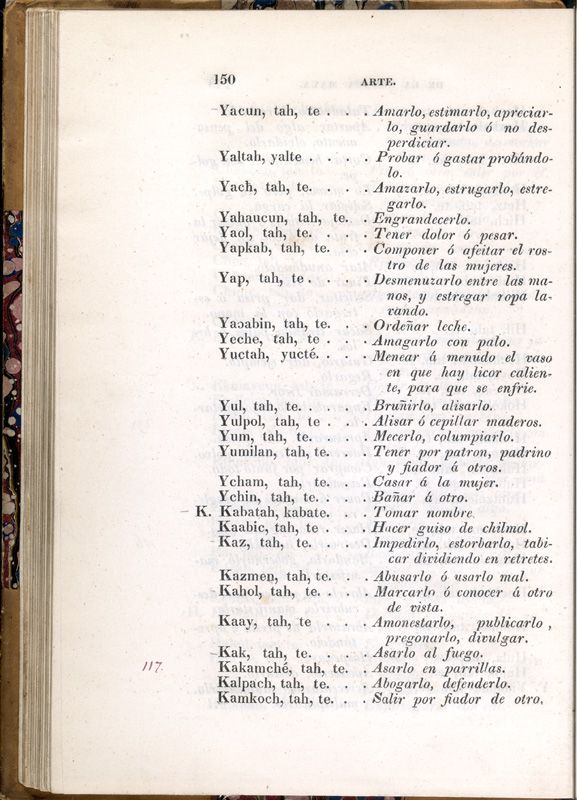 150 ARTE.
Yacun, tah, te . . . Amarlo, estimarlo, apreciar-
lo, guardarlo ó no des-
perdiciar.
Yaltah, yalte . . . . . Probar ó gastar probándo-
lo.
Yach, tah, te. . . . Amazarlo, estrugarlo, estre-
garlo.
Yahaucun, tah, te. . Engrandecerlo.
Yaol, tah, te. . . . Tener dolor ó pesar.
Yapkab, tah, te. . . Componer ó afeitar el ros-
tro de las mujeres.
Yap, tah, te . . . . Desmenuzarlo entre las ma-
nos, y estregar ropa la-
vando.
Yaɔabin, tah, te. . . Ordeñar leche.
Yeche, tah, te . . . Amagarlo con palo.
Yuctah, yucté. . . . Menear á menudo el vaso
en que hay licor calien-
te, para que se enfrie.
Yul, tah, te. . . . . Bruñirlo, alisarlo.
Yulpol, tah, te . . . Alisar ó cepillar maderos.
Yum, tah, te. . . . Mecerlo, columpiarlo.
Yumilan, tah, te. . . Tener por patron, padrino
y fiador á otros.
Ycham, tah, te. . . Casar á la mujer.
Ychin, tah, te. . . . Bañar á otro.
K. Kabatah, kabate. . . Tomar nombre.
Kaabic, tah, te . . . Hacer guiso de chilmol.
Kaz, tah, te. . . . Impedirlo, estorbarlo, tabi-
car dividiendo en retretes.
Kazmen, tah, te. . . Abusarlo ó usarlo mal.
Kahol, tah, te. . . Marcarlo ó conocer á otro
de vista.
Kaay, tah, te . . . Amonestarlo, publicarlo,
pregonarlo, divulgar.
Kak, tah, te. . . . Asarlo al fuego.
117. Kakamché, tah, te. . Asarlo en parrillas.
Kalpach, tah, te. . . Abogarlo, defenderlo.
Kamkoch, tah, te. . . Salir por fiador de otro.